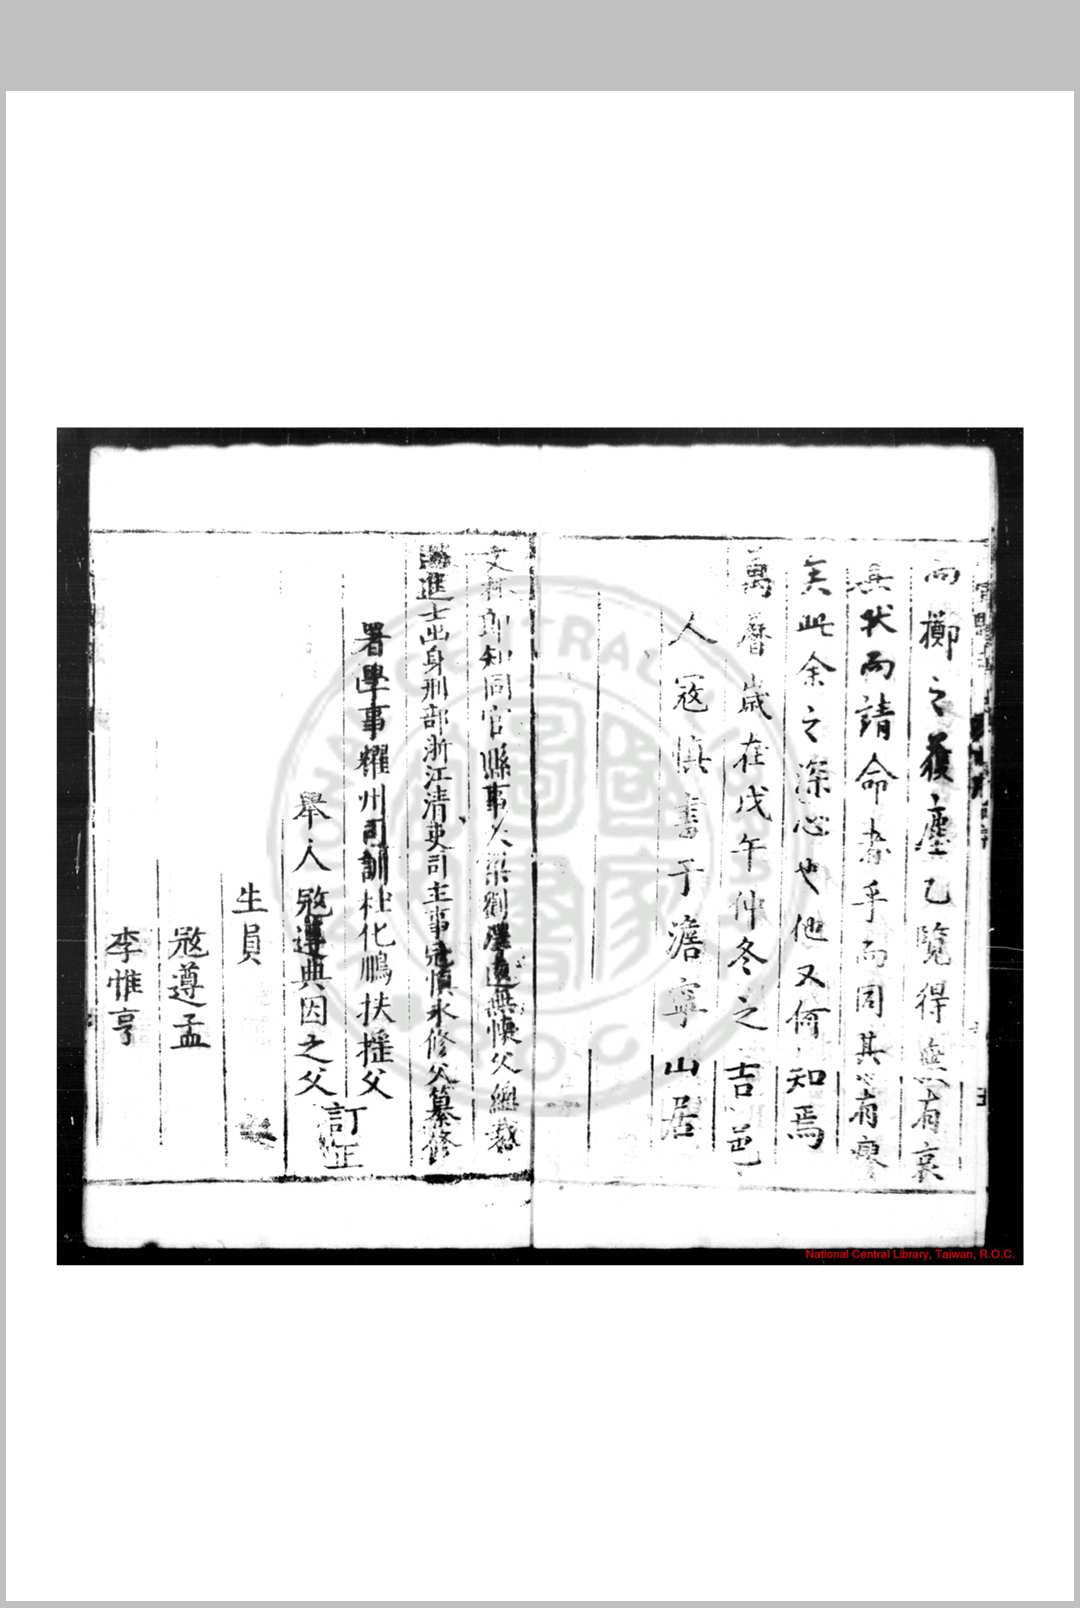 而擲之獲塵乙覽得無有哀
其狀而請命者乎而同其心有寥
矣此余之深心也他又何知焉
萬曆歲在戊午仲冬之吉邑
人寇慎書于澹寧山居
文林郎知同官縣事大梁劉澤遠無懷父總裁
進士出身刑部浙江清吏司主事寇慎永修父纂修
署學事耀州司訓杜化鵬扶搖父
舉人寇遵典因之父
訂正
生員
寇遵孟
李惟亨
National Central Library, Taiwan, R.O.C.